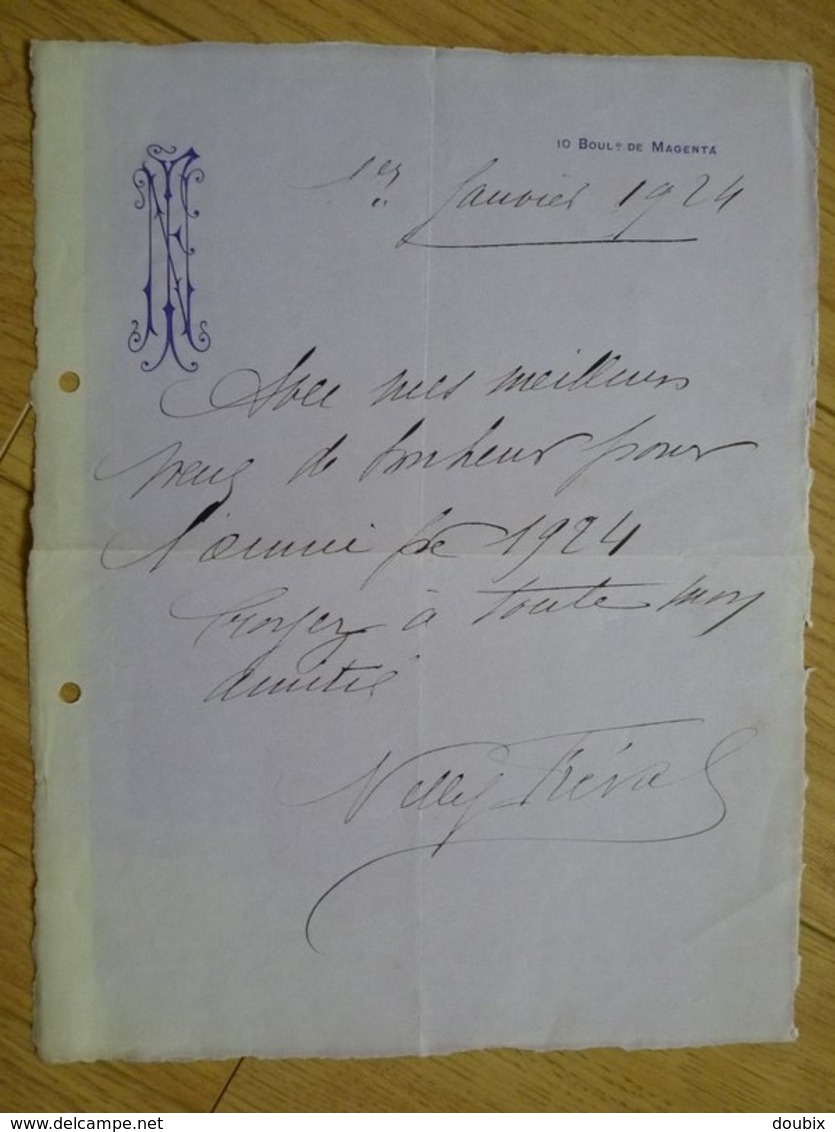 10 BOULD. DE MAGENTA
1er Janvier 1924
Avec mes meilleurs
vœux de bonheur pour
l'année 1924
Croyez à toute mon
amitié
Nelly Fréval
delcampe.net
doubix